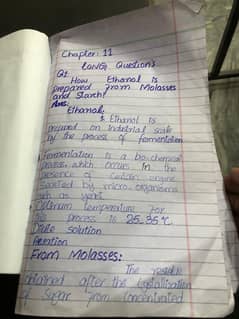 Chapter: 11
LONG. Questions
Q1
How Ethanol is
prepared from Molasses
and Starch?
Ans.
Ethanol:
Ethanol is
prepared on Industrial scale
by the process of fermentation
Fermentation is a bio-chemical
process which occurs in the
presence of certain
secreted by micro-organisms
such as yeast.
temperature for
this process is 25-35°C.
solution
From Molasses:
The residue
obtained after the crystallization
of Sugar from concentrated